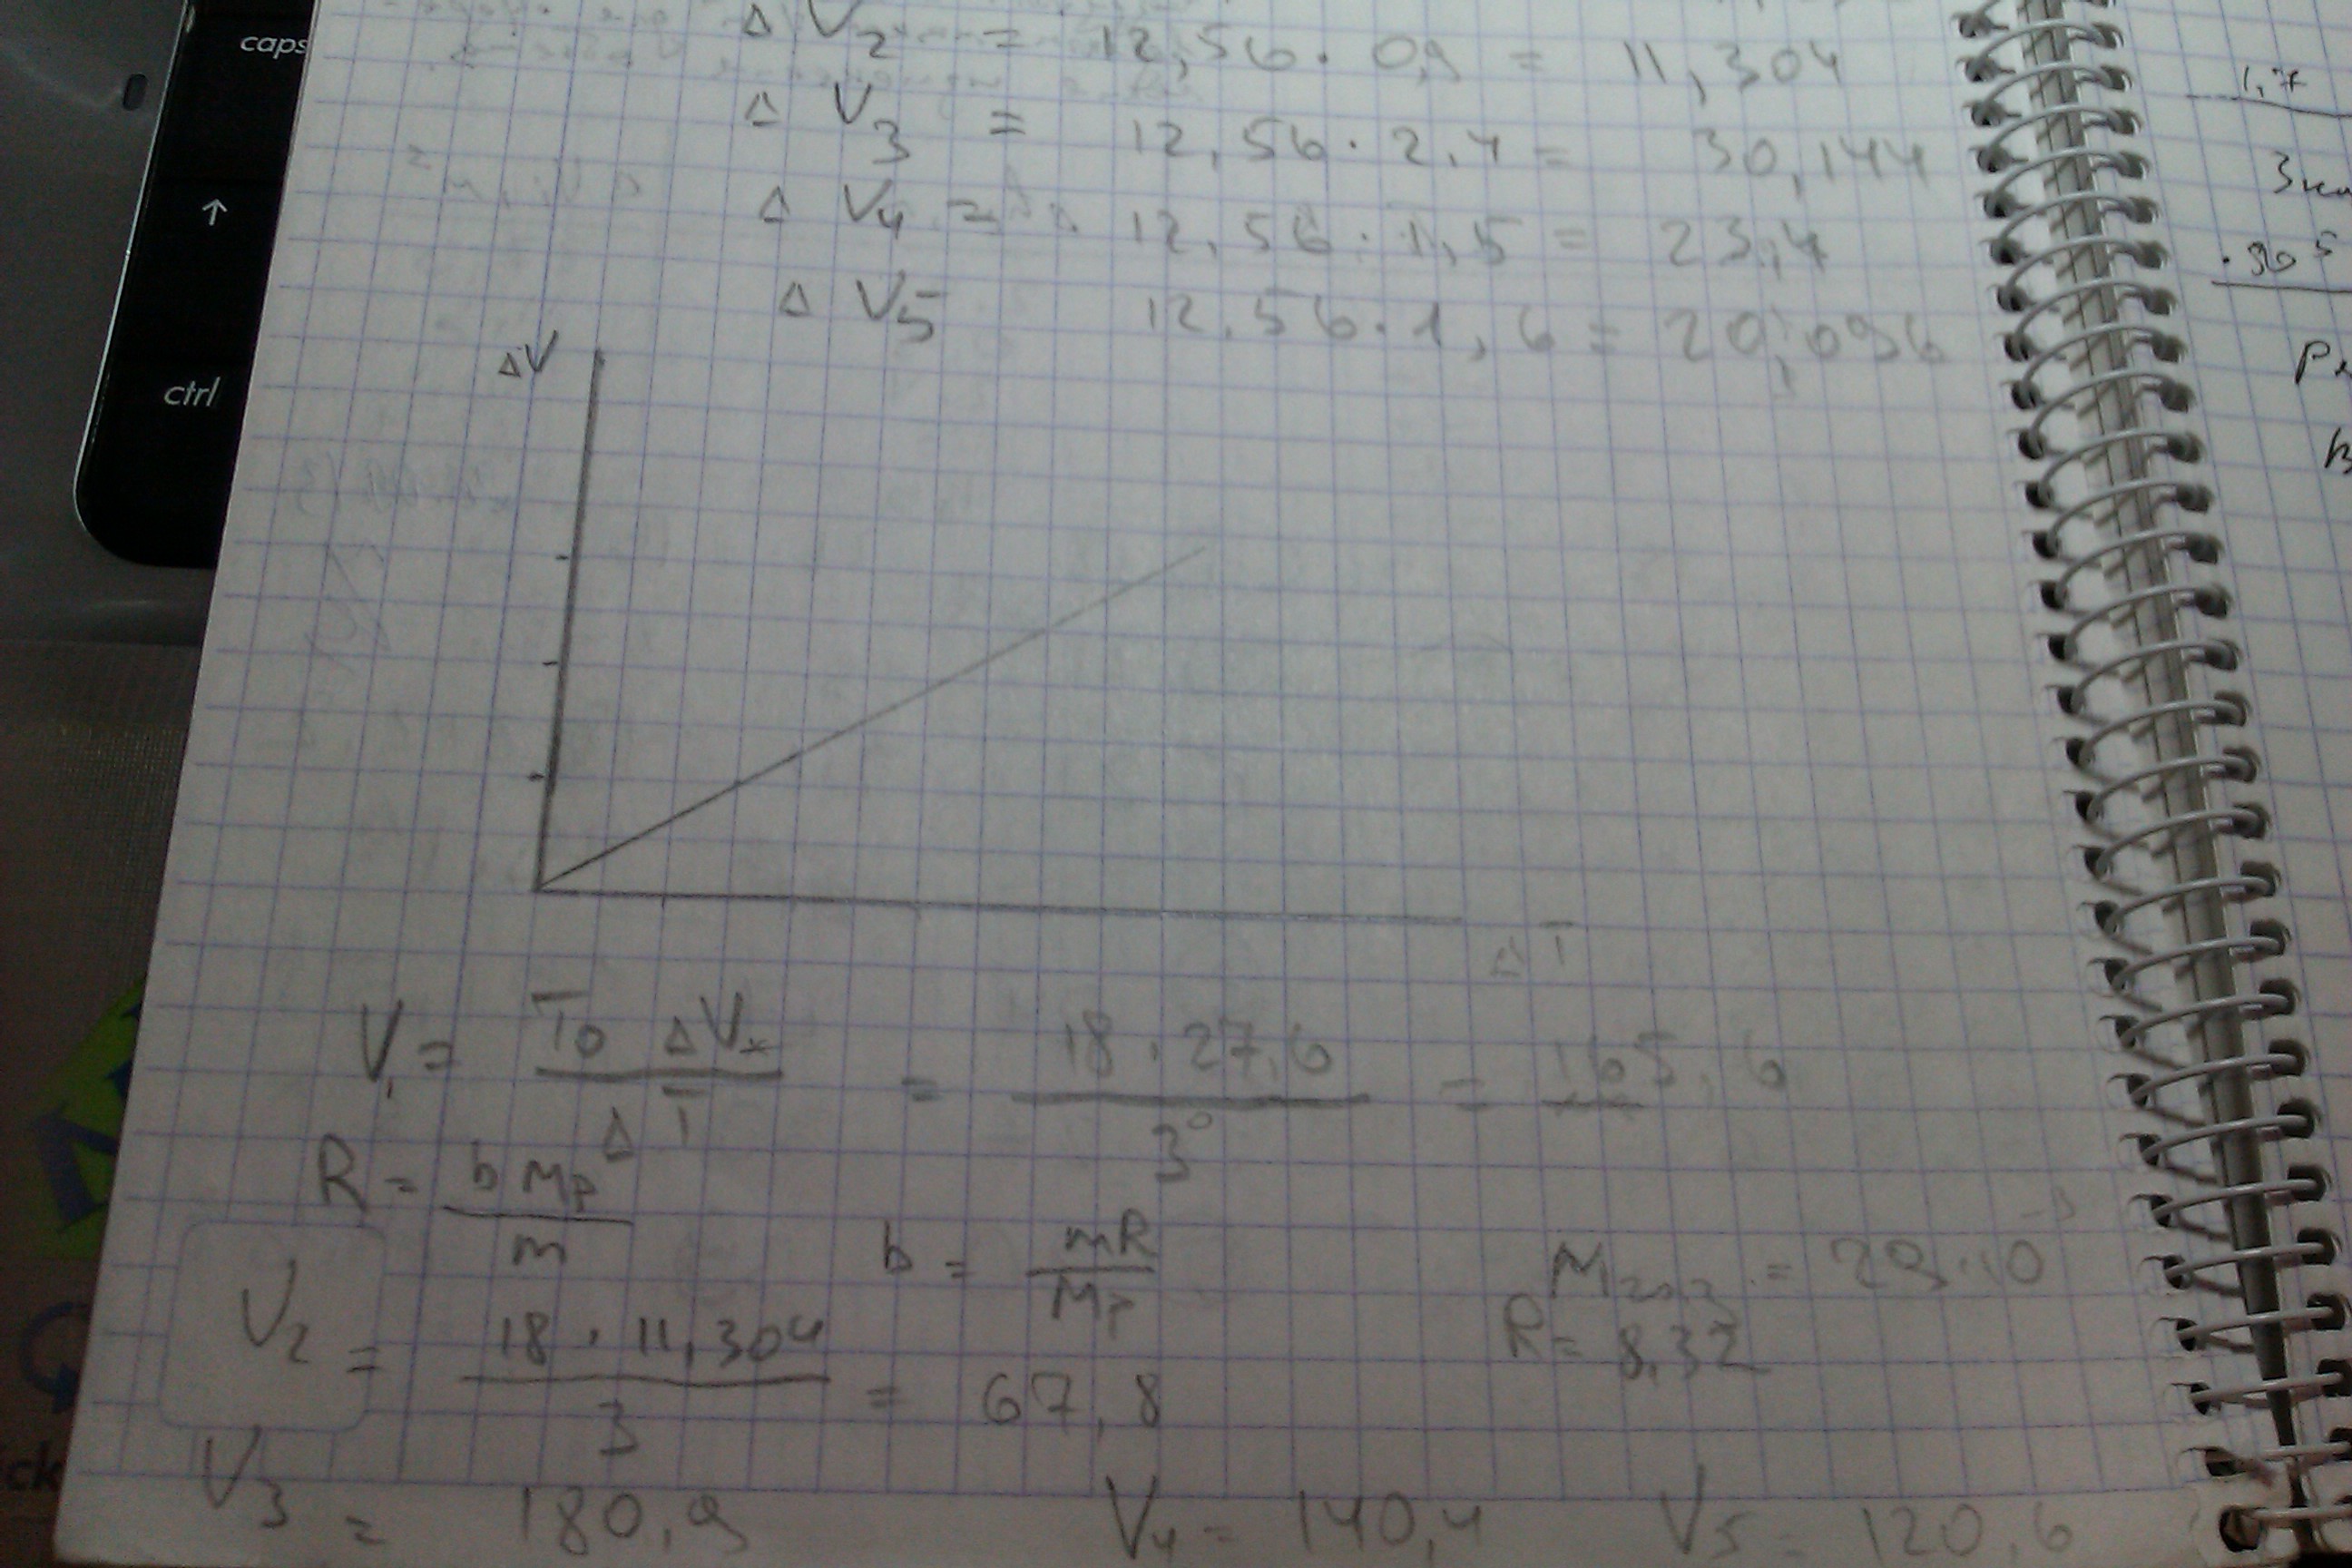 caps
↑
ctrl
Δ V2 = 12,56 · 0,9 = 11,304
Δ V3 = 12,56 · 2,4 = 30,144
Δ V4 = 12,56 · 1,5 = 23,4
Δ V5 12,56 · 1,6 = 20,096
ΔV
ΔT
V1 = T0 ΔVx / ΔT = 18 · 27,6 / 3° = 165,6
R = b Mp / m
b = mR / Mp
M = 29·10⁻³
R = 8,32
V2 = 18 · 11,304 / 3 = 67,8
V3 = 180,9 V4 = 140,4 V5 = 120,6
1,7